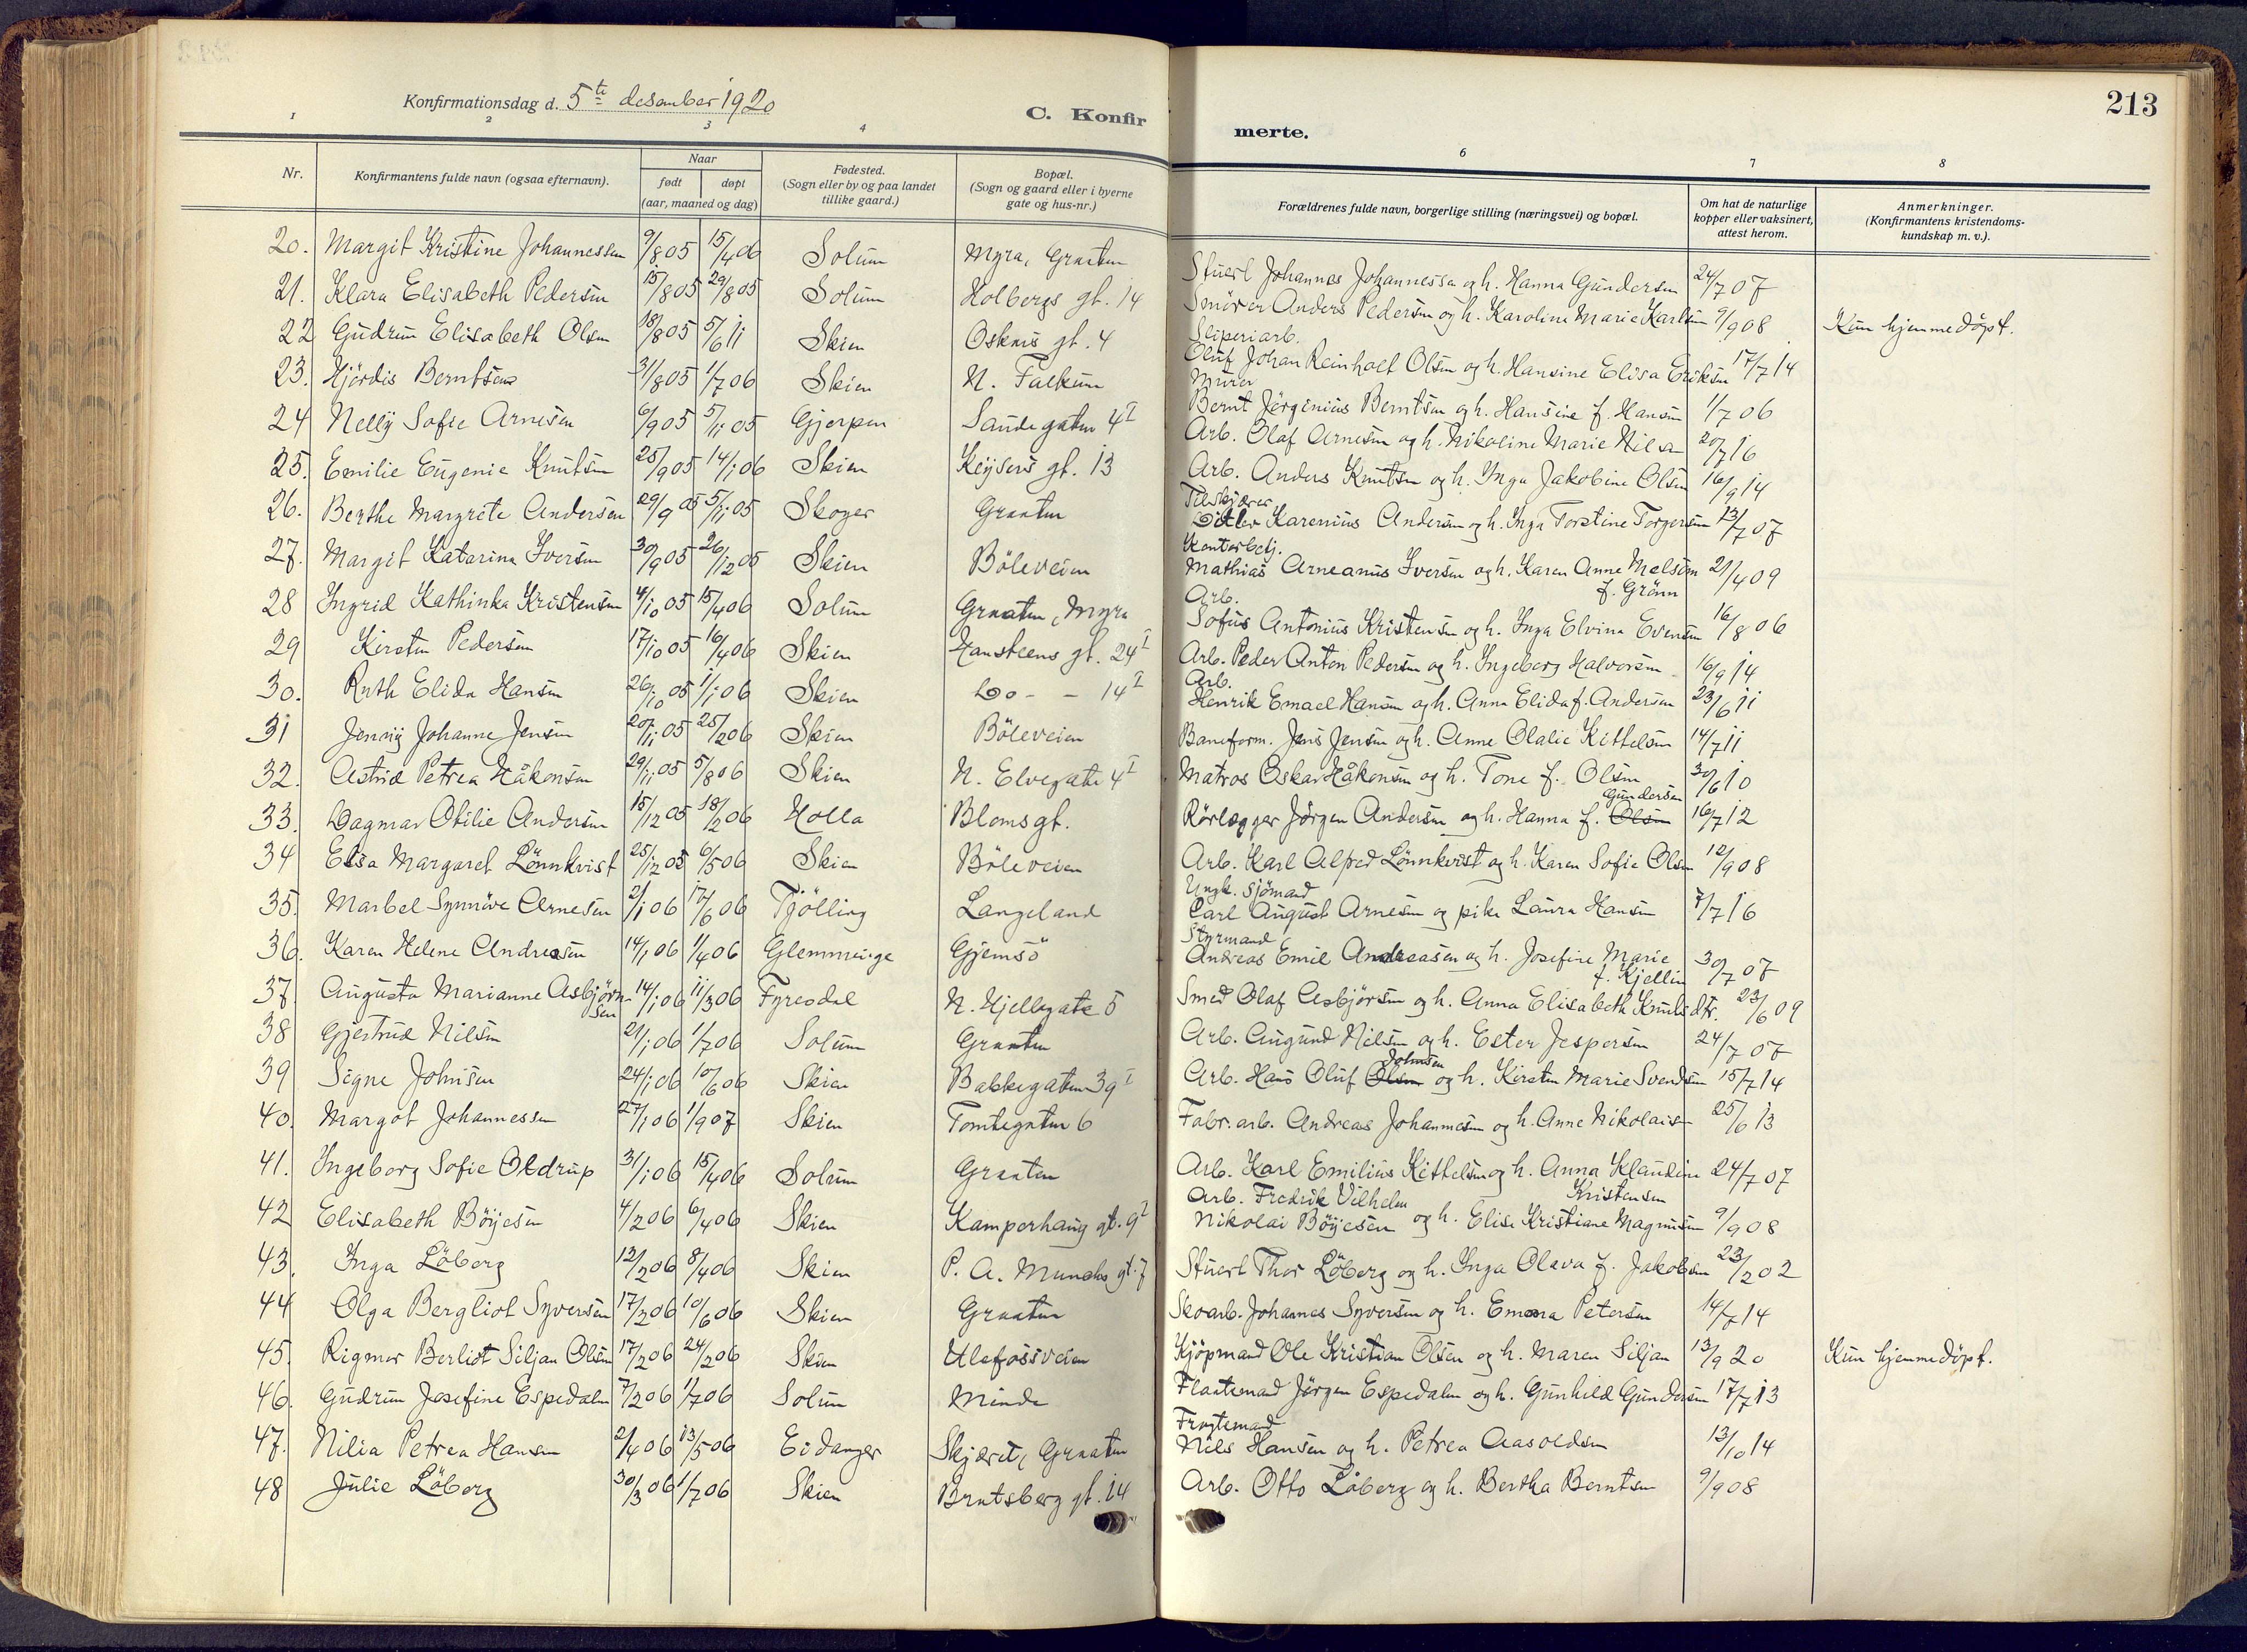 213
Konfirmationsdag d. 5te desember 1920
C. Konfirmerte.
1 2 3 4 6 7 8
Nr.
Konfirmantens fulde navn (ogsaa efternavn).
Naar
født
døpt
(aar, maaned og dag)
Fødested.
(Sogn eller by og paa landet
tillike gaard.)
Bopæl.
(Sogn og gaard eller i byerne
gate og hus-nr.)
Forældrenes fulde navn, borgerlige stilling (næringsvei) og bopæl.
Om hat de naturlige
kopper eller vaksinert,
attest herom.
Anmerkninger.
(Konfirmantens kristendoms-
kundskap m. v.).
20. Margit Kristine Johannessen 9/8 05 15/4 06 Solum Myra, Graaten Stuert Johannes Johannessen og h. Hanna Gundersen 24/7 07
21. Klara Elisabeth Pedersen 15/8 05 29/8 05 Solum Holbergs gt. 14 Smører Anders Pedersen og h. Karoline Marie Karlsen 9/9 08 Kun hjemmedöpt.
22 Gudrun Elisabeth Olsen 18/8 05 5/6 11 Skien Oskars gt. 4 Sliperiarb.
Oluf Johan Reinholt Olsen og h. Hansine Elisa Eriksen 17/7 14
23. Hjördis Berntsen 31/8 05 1/7 06 Skien N. Falkum Murer
Bernt Jörginius Berntsen og h. Hansine f. Hansen 1/7 06
24 Nelly Sofie Arnesen 6/9 05 5/11 05 Gjerpen Saudegaten 4 I Arb. Olaf Arnesen og h. Nikoline Marie Nilsen 20/7 16
25. Emilie Eugenie Knutsen 25/9 05 14/1 06 Skien Keysers gt. 13 Arb. Anders Knutsen og h. Inga Jakobine Olsen 16/9 14
26. Berthe Margrete Andersen 29/9 05 5/11 05 Skoger Graaten Tilskjærer
Ditlev Karenius Andersen og h. Inga Torstine Torgersen 13/7 07
27. Margit Katarina Iversen 30/9 05 26/12 05 Skien Böleveien Kontorbetj.
Mathias Arneanus Iversen og h. Karen Anne Melsom 21/4 09
f. Grönn
28 Ingrid Kathinka Kristensen 4/10 05 15/4 06 Solum Graaten, Myra Arb.
Sofus Antonius Kristensen og h. Inga Elvina Evensen 16/8 06
29 Kirsten Pedersen 17/10 05 16/4 06 Skien Hansteens gt. 24 I Arb. Peder Anton Pedersen og h. Ingeborg Halvorsen 16/9 14
30. Ruth Elida Hansen 26/10 05 1/1 06 Skien Do - - 14 I Arb.
Henrik Emael Hansen og h. Anna Elida f. Andersen 23/6 11
31 Jenny Johanne Jensen 20/11 05 25/2 06 Skien Böleveien Baneform. Jens Jensen og h. Anne Olalie Kittelsen 14/7 11
32. Astrid Petrea Håkonsen 29/11 05 5/8 06 Skien N. Elvegate 4 I Matros Oskar Håkonsen og h. Tone f. Olsen 30/6 10
33. Dagmar Otilie Andersen 15/12 05 18/2 06 Holla Bloms gt. Rörlægger Jörgen Andersen og h. Hanna f. Olsen Gundersen 16/7 12
34 Elsa Margaret Lönnkvist 25/12 05 6/5 06 Skien Böleveien Arb. Karl Alfred Lönnkvist og h. Karen Sofie Olsen 12/9 08
35. Marbel Synnöve Arnesen 2/1 06 17/6 06 Tjölling Langeland Ungk. sjömand
Carl August Arnesen og pike Laura Hansen 7/7 16
36. Karen Helene Andreasen 14/1 06 1/4 06 Glemminge Gjemsö Styrmand
Andreas Emil Andreasen og h. Josefine Marie 30/7 07
f. Kjellin
37. Augusta Marianne Asbjörn-
sen 14/1 06 11/3 06 Fyresdal N. Hjellegate 5 Smed Olaf Asbjörsen og h. Anna Elisabeth Knutsdtr. 23/6 09
38 Gjertrud Nilsen 21/1 06 1/7 06 Solum Graaten Arb. Augund Nilsen og h. Ester Jespersen 24/7 07
39 Signe Johnsen 24/1 06 10/6 06 Skien Bakkegaten 39 I Arb. Hans Oluf Olsen Johnsen og h. Kirsten Marie Svendsen 15/7 14
40. Margot Johannessen 27/1 06 1/9 07 Skien Tomtegaten 6 Fabr. arb. Andreas Johannesen og h. Anne Nikolaisen 25/6 13
41. Ingeborg Sofie Oldrup 31/1 06 15/4 06 Solum Graaten Arb. Karl Emilius Kittelsen og h. Anna Klaudine 24/7 07
Kristensen
42 Elisabeth Böyesen 4/2 06 6/4 06 Skien Kamperhaug gt. 9 I Arb. Fredrik Vilhelm
Nikolai Böyesen og h. Elise Kristiane Magnusen 9/9 08
43. Inga Löberg 12/2 06 8/4 06 Skien P. A. Munchs gt. 7 Stuert Thor Löberg og h. Inga Olava f. Jakobsen 23/2 02
44 Olga Bergliot Syversen 17/2 06 10/6 06 Skien Graaten Skoarb. Johannes Syversen og h. Emma Petersen 14/7 14
45. Rigmor Berliot Siljan Olsen 17/2 06 24/2 06 Skien Ulefossveien Kjöpmand Ole Kristian Olsen og h. Maren Siljan 13/9 20 Kun hjemmedöpt.
46. Gudrun Josefine Espedalen 7/2 06 1/7 06 Solum Minde Flaatemand Jörgen Espedalen og h. Gunhild Gundersen 17/7 13
47. Nilia Petrea Hansen 2/4 06 13/5 06 Eidanger Skjæret, Graaten Fragtemand
Nils Hansen og h. Petrea Aasoldsen 13/10 14
48 Julie Löberg 30/3 06 1/7 06 Skien Bratsberg gt. 14 Arb. Otto Löberg og h. Bertha Berntsen 9/9 08